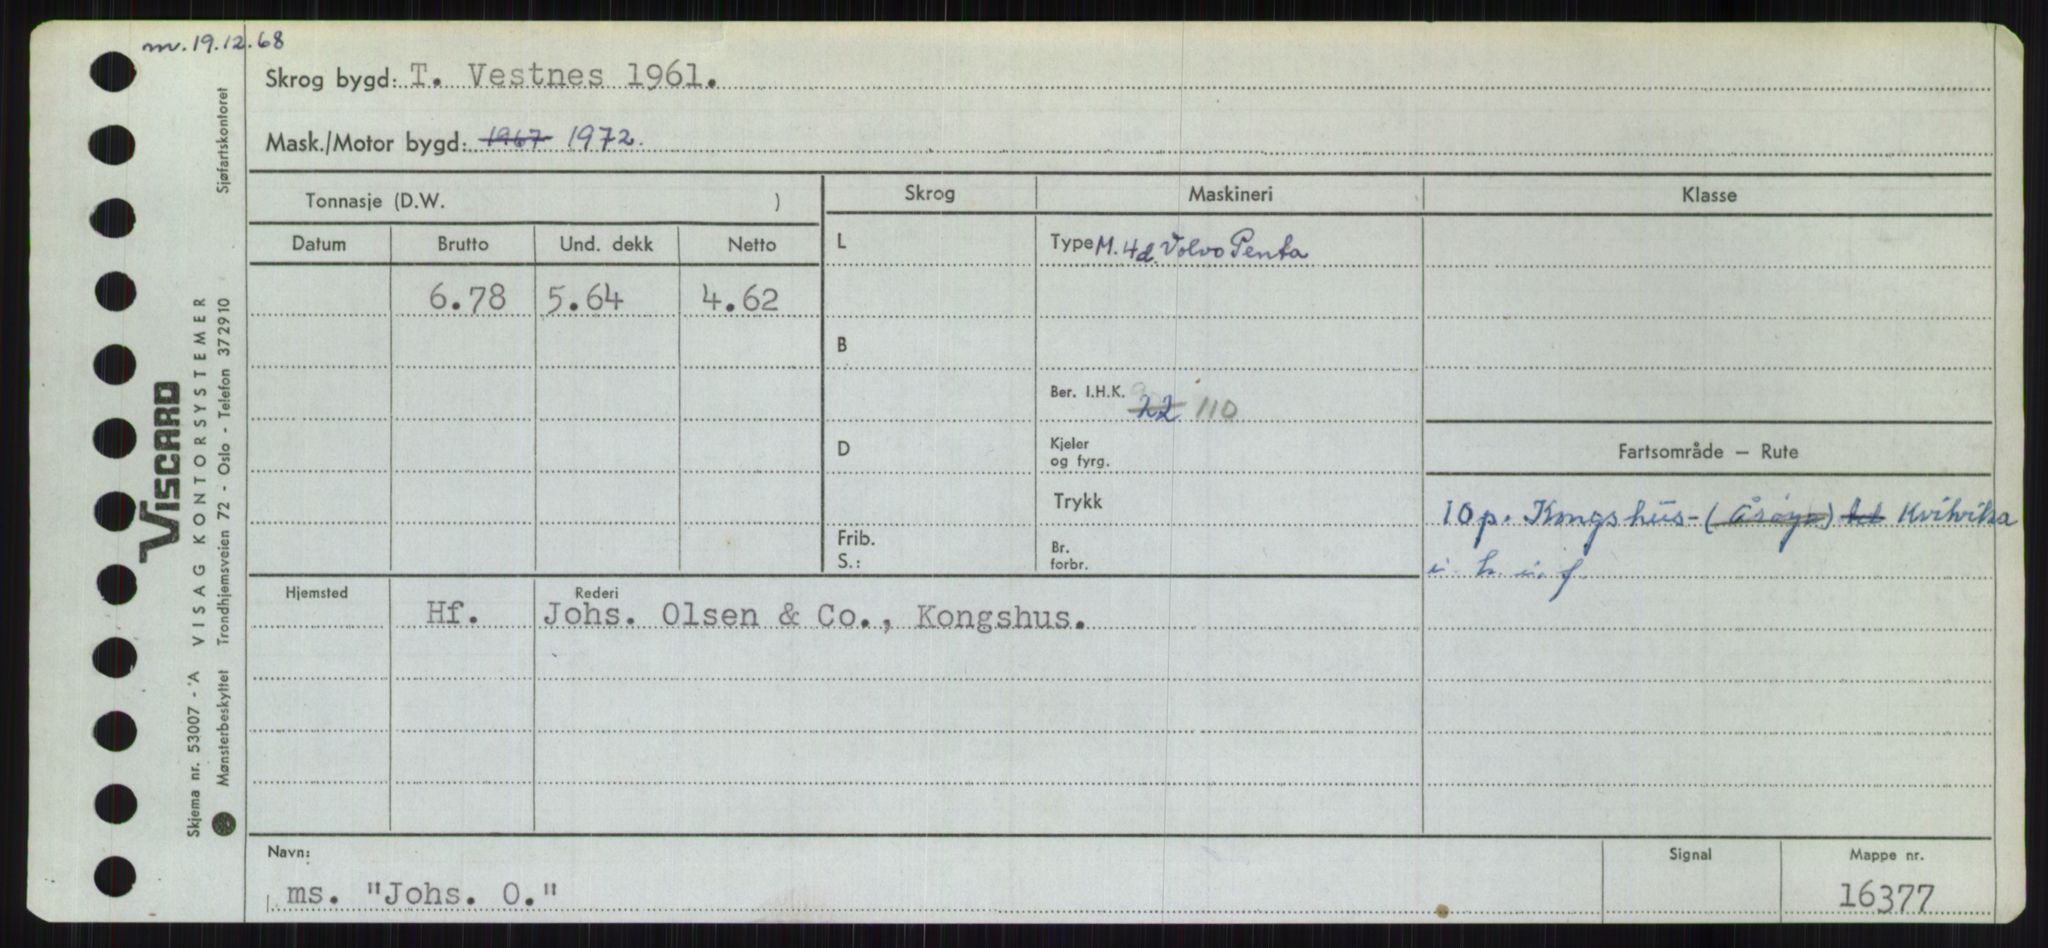 m. 19.12.68
Skrog bygd: T. Vestnes 1961.
Mask./Motor bygd: 1967 1972.
Tonnasje (D.W. )
Skrog Maskineri Klasse
Datum Brutto Und. dekk Netto
L
Type M. 4d. Volvo Penta
6.78 5.64 4.62
B
Ber. I.H.K. 22 110
D
Kjeler
og fyrg.
Fartsområde — Rute
Trykk
10 p. Kongshus - (Årøya) Kvitvika
Frib.
S.:
Br.
forbr.
i. h. i. f.
Hjemsted Rederi
Hf. Johs. Olsen & Co., Kongshus.
Navn: Signal Mappe nr.
ms. "Johs. O." 16377
Sjøfartskontoret
VISCARD
VISAG KONTORSYSTEMER
Skjema nr. 53007 - A
Mønsterbeskyttet Trondhjemsveien 72 - Oslo - Telefon 372910